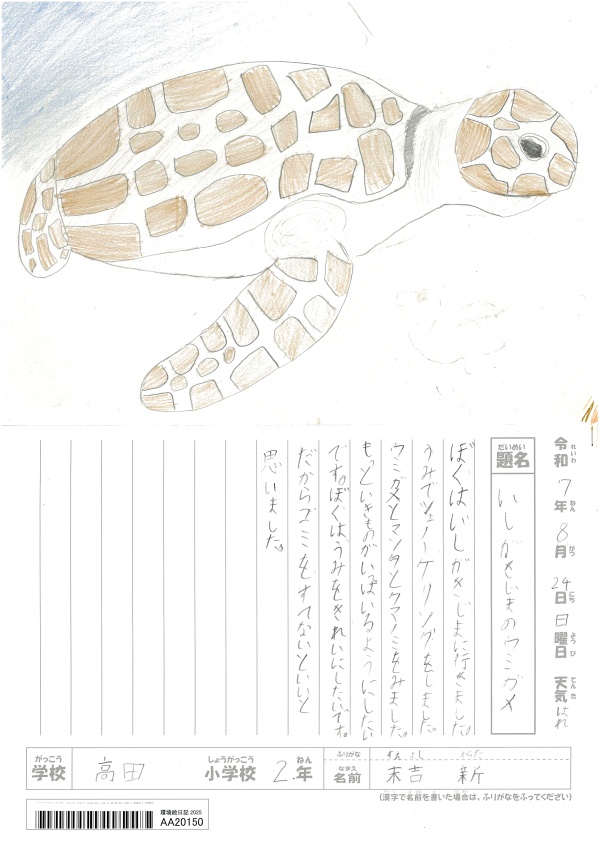 令和7年8月24日日曜日 天気はれ
れいわ ねん がつ にち ようび てんき
だいめい
題名 いしがきじまのウミガメ
ぼくはいしがきじまに行きました。
うみでシュノーケリングをしました。
ウミガメとマンタとクマノミをみました。
もっといきものがいっぱいるようにしたい
です。ぼくは、うみをきれいにしたいです。
だからゴミをすてないといいと
思いました。
がっこう しょうがっこう ねん
学校 高田 小学校 2.年
ふりがな すえよし
なまえ
名前 末吉 新
(漢字で名前を書いた場合は、ふりがなをふってください)
環境絵日記 2025
AA20150